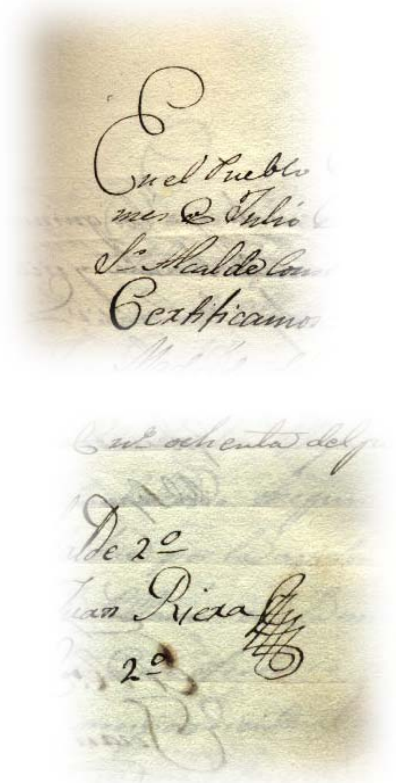 En el Pueblo
mes de Julio
Sr. Alcalde Cons
Certificamos
ochenta del
alde 2º
Juan Riera
2º